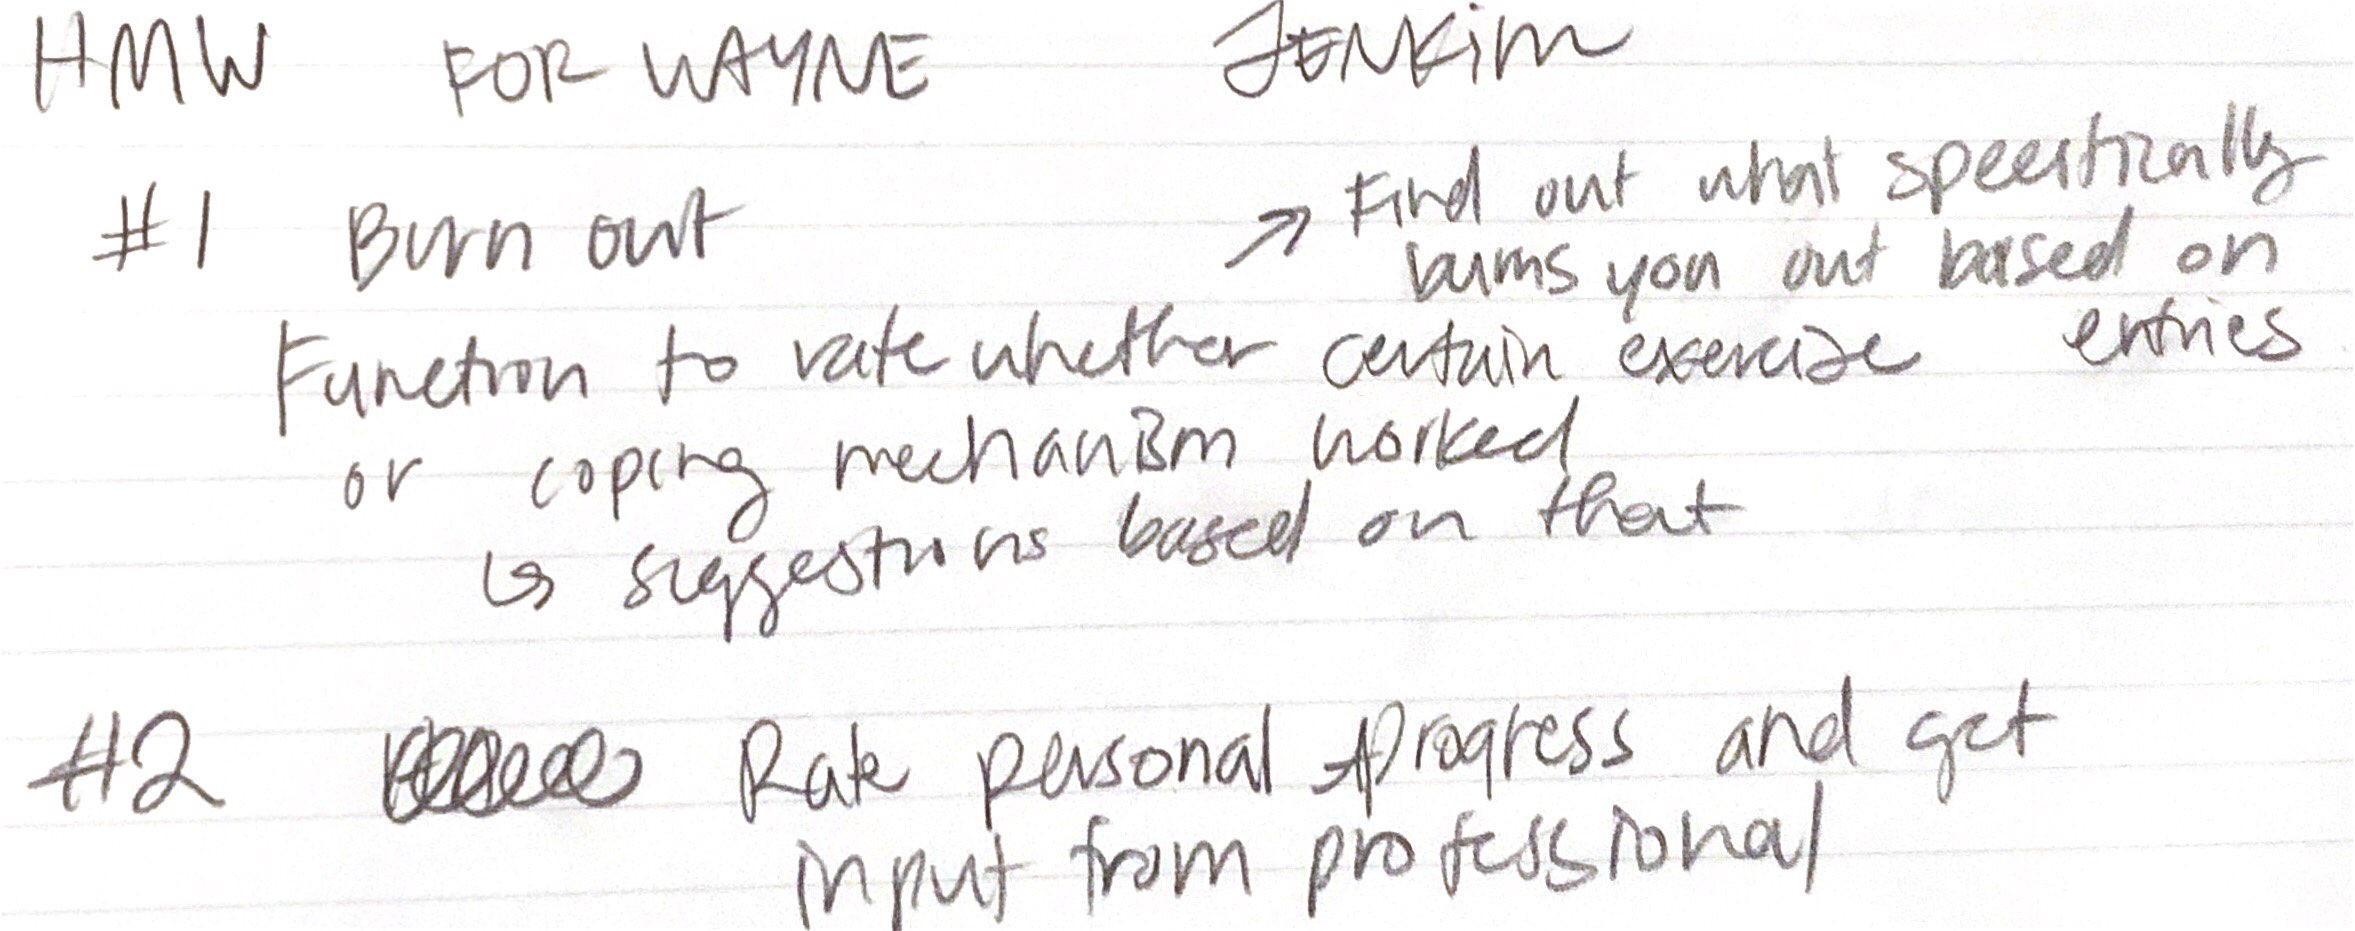 HMW FOR WAYNE JENKim
#1 Burn out
→ Find out what specifically
burns you out based on
entries
Function to rate whether certain exercise
or coping mechanism worked
↳ suggestions based on that
#2 Rate personal progress and get
input from professional